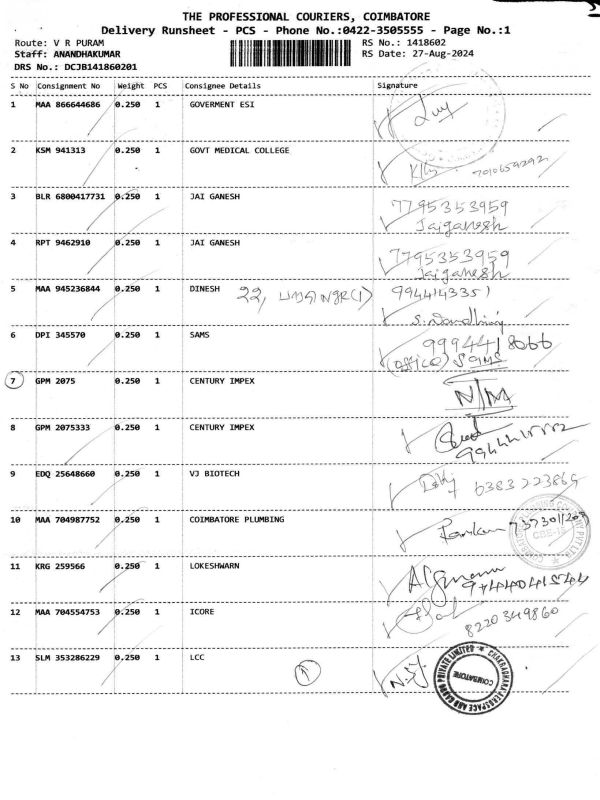 THE PROFESSIONAL COURIERS, COIMBATORE
Delivery Runsheet - PCS - Phone No.:0422-3505555 - Page No.:1
Route: V R PURAM RS No.: 1418602
Staff: ANANDHAKUMAR RS Date: 27-Aug-2024
DRS No.: DCJB141860201
S No Consignment No Weight PCS Consignee Details Signature
1 MAA 866644686 0.250 1 GOVERMENT ESI
2 KSM 941313 0.250 1 GOVT MEDICAL COLLEGE
3 BLR 6800417731 0.250 1 JAI GANESH 7795353959
Jaiganesh
4 RPT 9462910 0.250 1 JAI GANESH 7795353959
Jaiganesh
5 MAA 945236844 0.250 1 DINESH 22, 9944143351
6 DPI 345570 0.250 1 SAMS 9994418066
(office) SAMS
7 GPM 2075 0.250 1 CENTURY IMPEX N/M
8 GPM 2075333 0.250 1 CENTURY IMPEX
9 EDQ 25648660 0.250 1 VJ BIOTECH 6383223869
10 MAA 704987752 0.250 1 COIMBATORE PLUMBING
CBE-18
11 KRG 259566 0.250 1 LOKESHWARN
9444041544
12 MAA 704554753 0.250 1 ICORE
8220349860
13 SLM 353286229 0.250 1 LCC
COIMBATORE